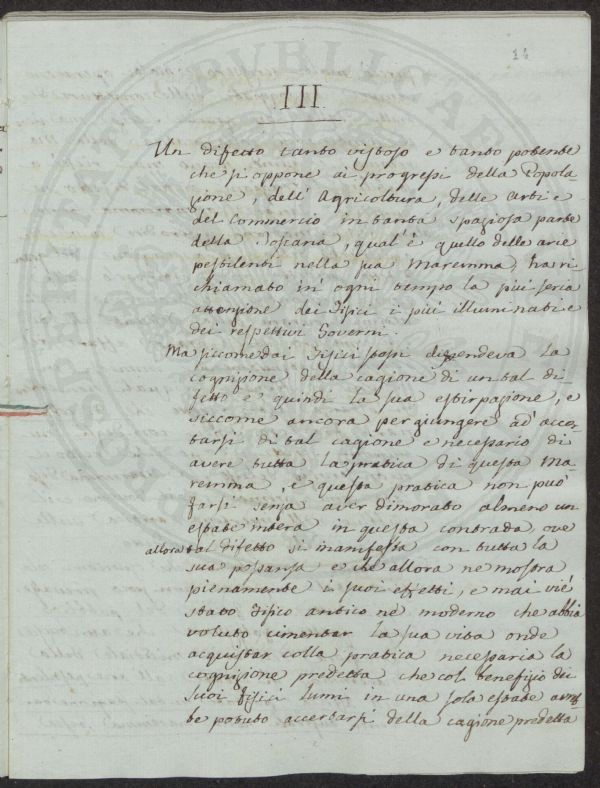 16
III.
Un difetto tanto vistoso e tanto potente
che si oppone ai progressi della Popola-
zione, dell' Agricoltura, delle Arti e
del Commercio in tanta spaziosa parte
della Toscana, qual'è quello delle arie
pestilenti nella sua Maremma, ha ri
chiamato in ogni tempo la più seria
attenzione dei Fisici i più illuminati e
dei respettivi Governi.
Ma siccome dai Fisici stessi dependeva la
cognizione della cagione di un tal di-
fetto e quindi la sua estirpazione, e
siccome ancora per giungere ad accer-
tarsi di tal cagione e necessario di
avere tutta la pratica di questa Ma-
remma, e questa pratica non può
farsi senza aver dimorato almeno un
estate intera in questa contrada, ove
allora tal difetto si manifesta con tutta la
sua possanza e che allora ne mostra
pienamente i suoi effetti, e mai vi è
stato Fisico antico ne moderno che abbia
voluto cimentar la sua vita onde
acquistar colla pratica necessaria la
cognizione predetta che col benefizio dei
suoi fisici lumi in una sola estate avreb-
be potuto accertarsi della cagione predetta
PROSPERITATI PVBLICAE